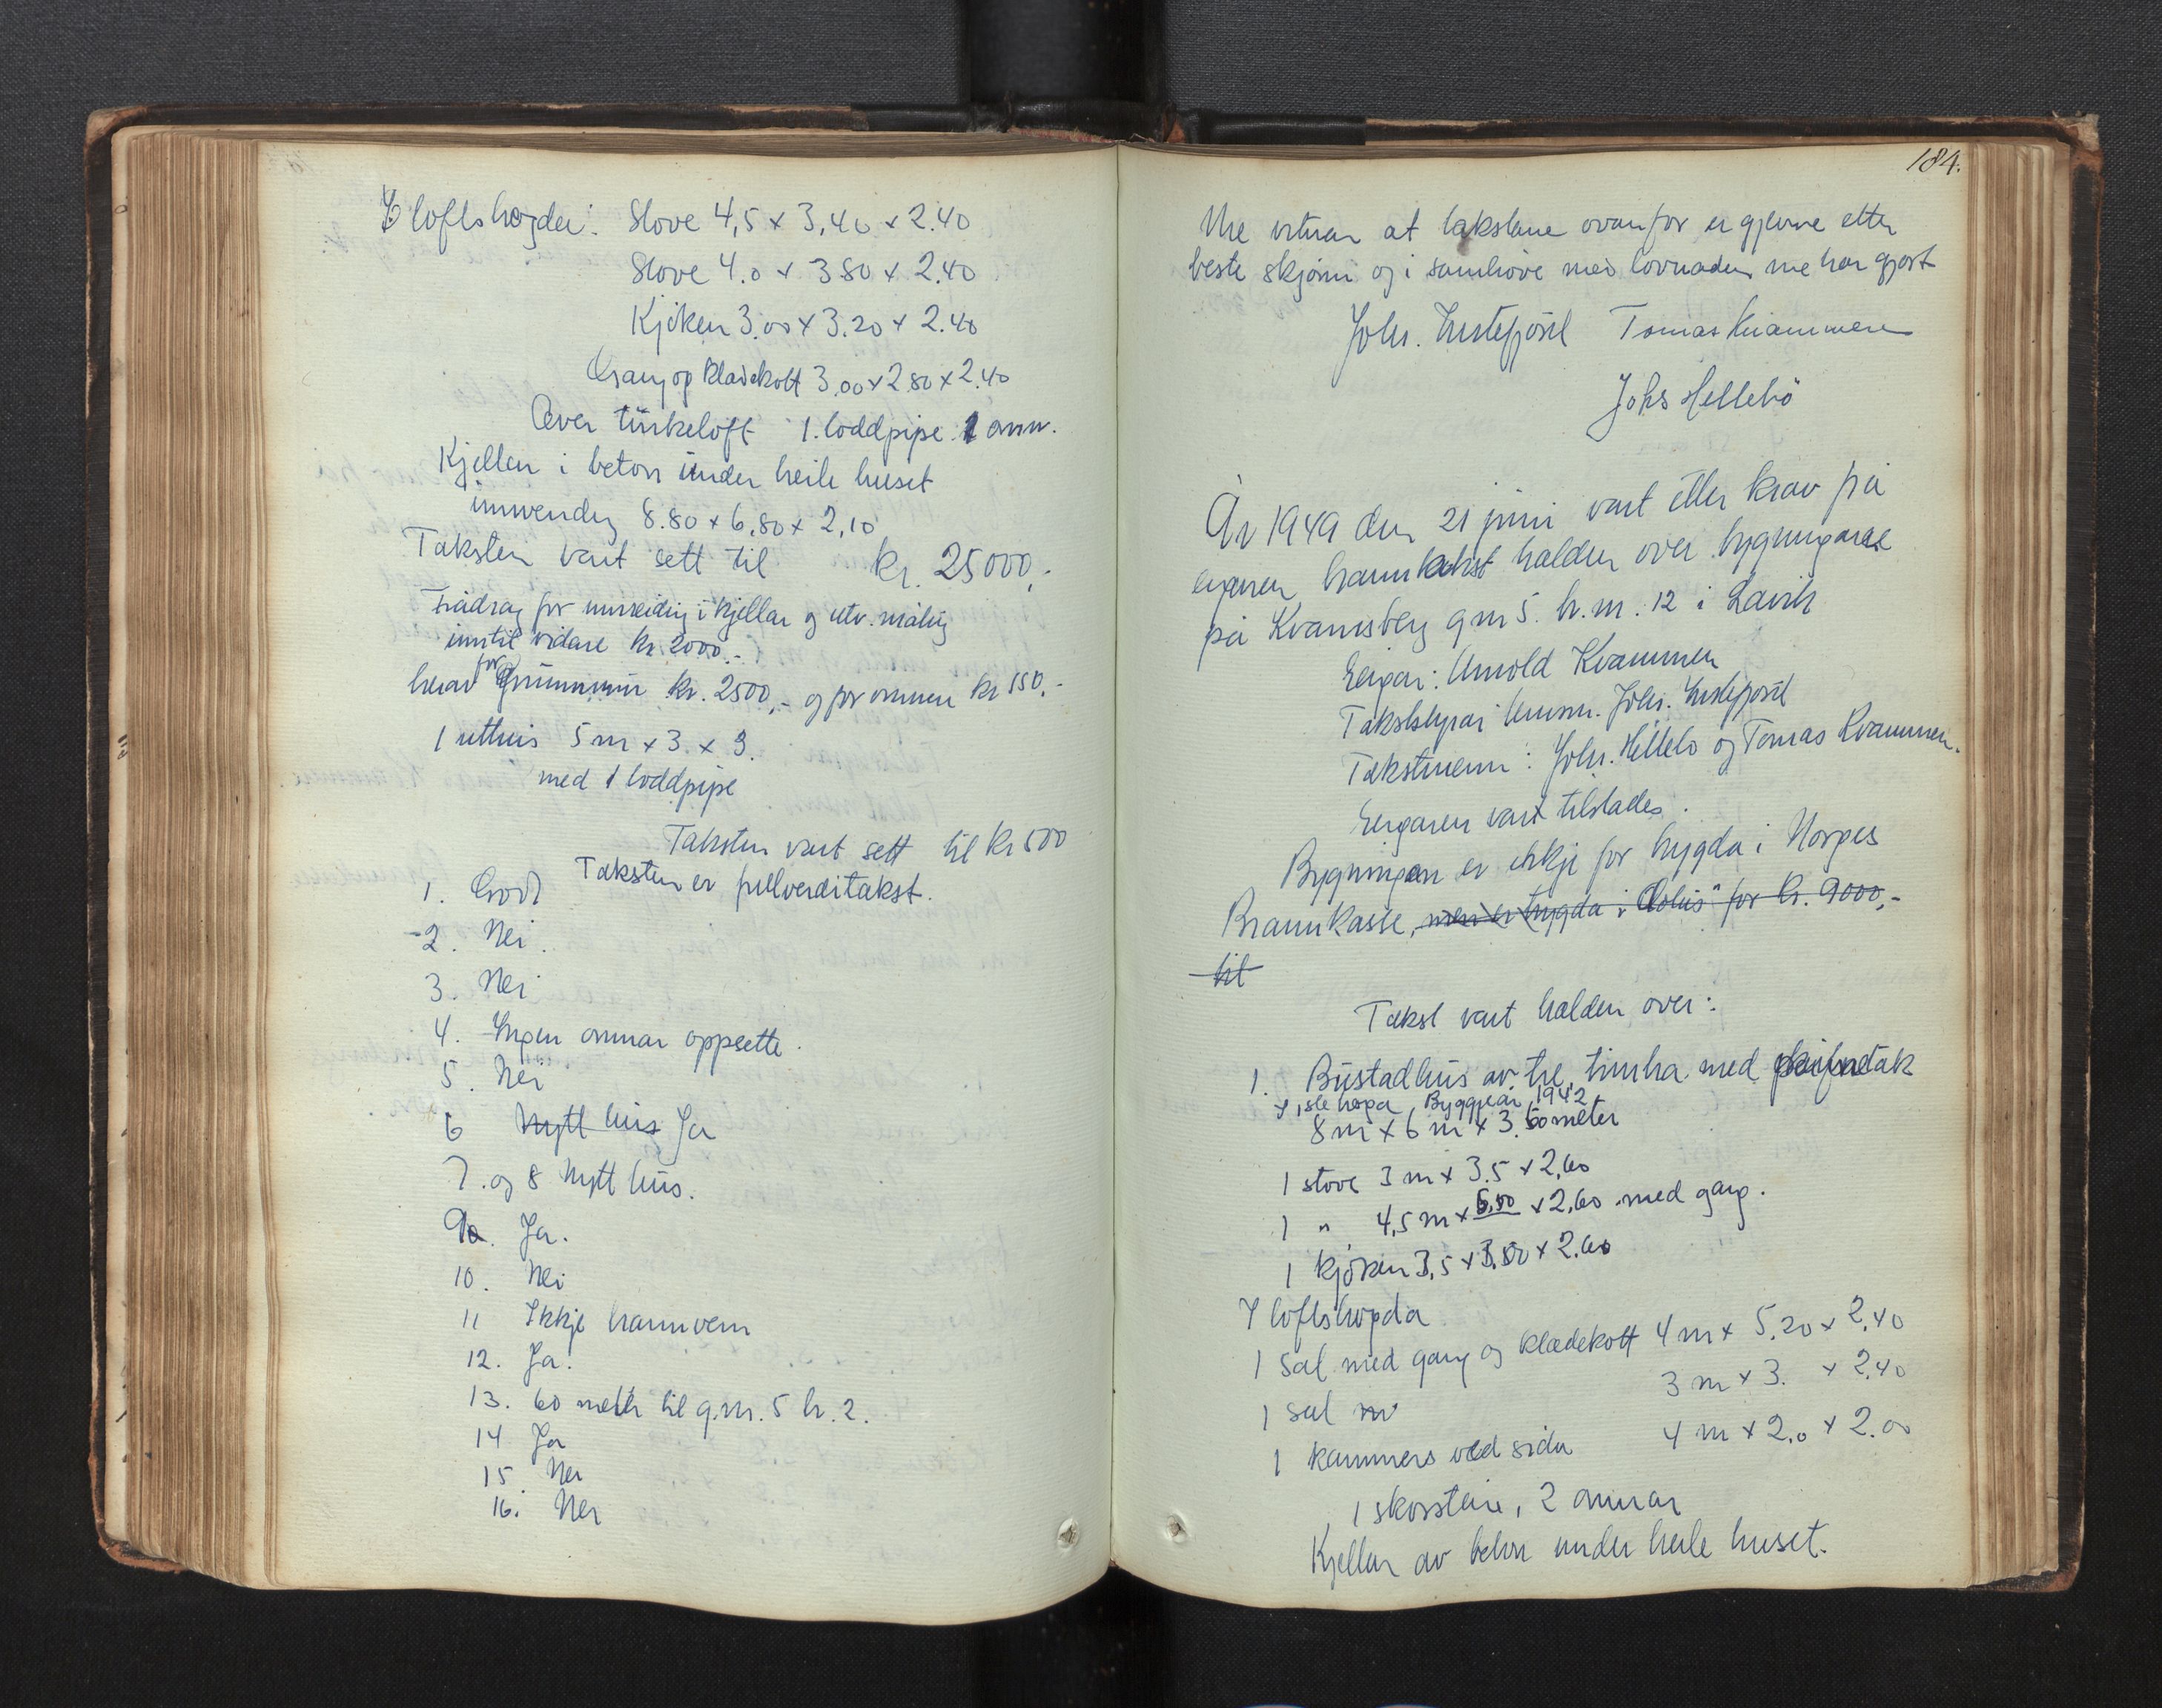 I loftshøgdei: Stove 4,5 x 3,40 x 2.40
Stove 4.0 x 3.80 x 2.40
Kjøken 3.00 x 3.20 x 2.40
Gang og kladekott 3,00 x 2.80 x 2.40
Over turkeloft 1. loddpipe 1 omn.
Kjellar i beton under heile huset
innvendig 8.80 x 6,80 x 2,10
Taksten vart sett til kr. 25000,-
Frådrag for innreiding i kjellar og utv. måling
inntil vidare kr. 2000.-
herav for grunnmur kr. 2500,- og for omnen kr 150.-
1 uthus 5 m x 3. x 3.
med 1 loddpipe
Taksten vart sett til kr 500
Taksten er fullverditakst.
1. God
2. Nei.
3. Nei
4. Ingen omnar oppsette.
5. Nei
6 Nytt hus Ja
7. og 8 Nytt hus.
9. Ja.
10. Nei
11 Ikkje brannvern
12. Ja.
13. 60 meter til g.nr. 5 br. 2.
14 Ja
15. Nei
16. Nei
184.
Me vitnar at takstane ovanfor er gjevne etter
beste skjønn og i samhøve med lovnaden me har gjort
Johs. Instefjord Tomas Kvammen
Johs Hellebø
År 1949 den 21 juni vart etter krav frå
eigaren branntakst halden over bygningane
på Kvamsberg gnr 5. br. nr. 12 i Lavik
Eigar: Arnold Kvammen
Takststyrar: lensm. Johs. Instefjord
Takstmenn: Johs. Hellebø og Tomas Kvammen.
Eigaren vart tilstades.
Bygningen er ikkje før trygda i Norges
Brannkasse, men er trygda i "Æolus" for kr. 9000,-
til
Takst vart halden over:
1. Bustadhus av tre, timbra med skifertak
I 1ste høgda Byggjeår 1942
8 m x 6 m x 3.50 meter
1 stove 3 m x 3.5 x 2,60
1 " 4,5 m x x 2,60 med gang.
1 kjøken 3,5 x 3,50 x 2.60
I loftshøgda
1 sal med gang og klædekott 4 m x 5.20 x 2,40
1 sal 3 m x 3. x 2,40
1 kammers ved sida 4 m x 2,0 x 2.00
1 skorstein, 2 omnar
Kjellar av beton under heile huset.